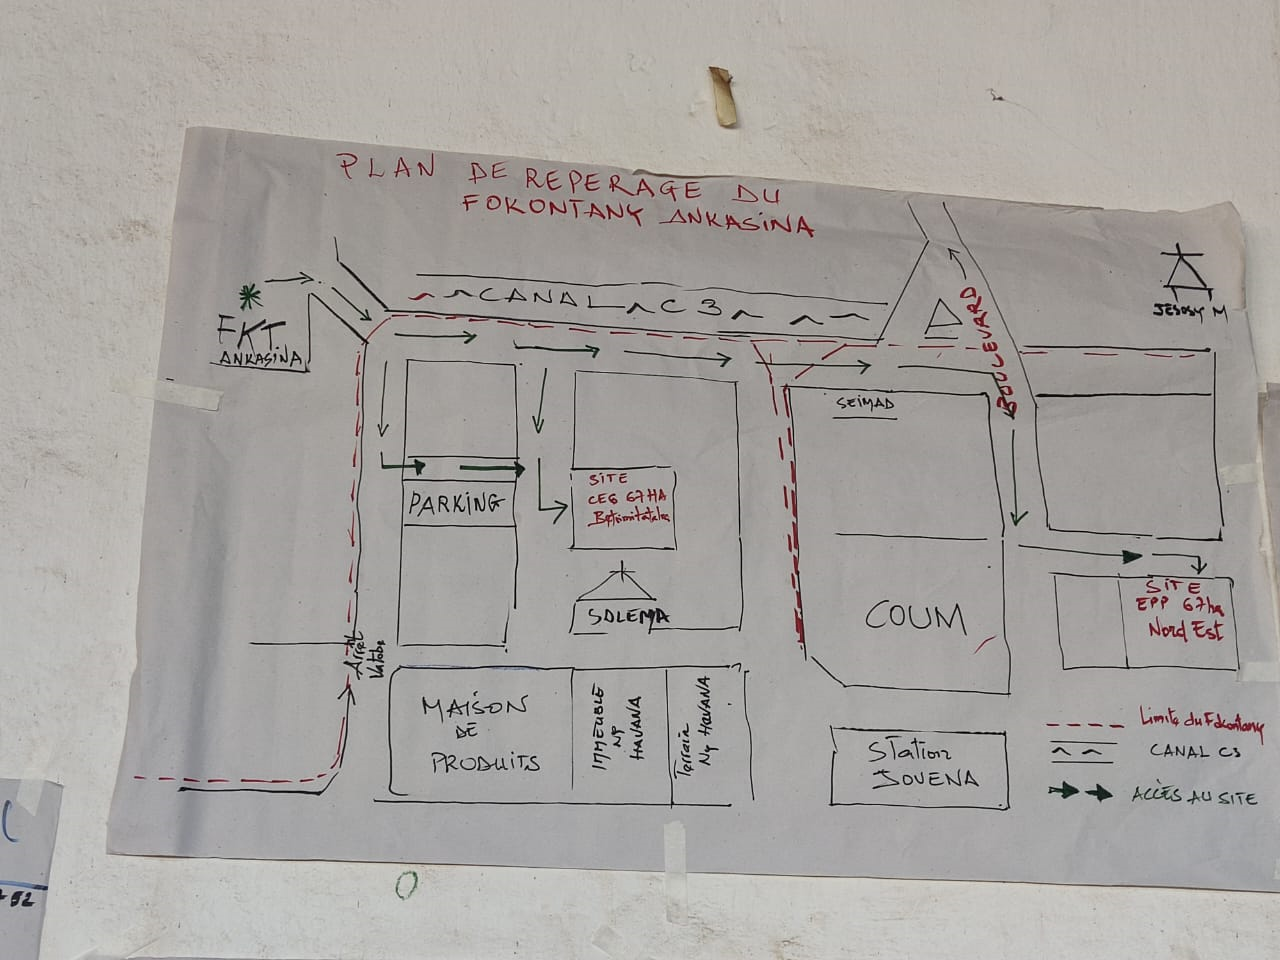 PLAN DE REPERAGE DU
FOKONTANY ANKASINA
CANAL C3
FKT
ANKASINA
BOULEVARD
JESOSY M
SEIMAD
PARKING
SITE
CEG 67HA
SOLEMA
COUM
SITE
EPP 67ha
Nord Est
Arret
MAISON
DE
PRODUITS
IMMEUBLE
NY
HAVANA
Terrain
NY HAVANA
Station
JOVENA
Limite du Fokontany
CANAL C3
ACCÈS AU SITE
52